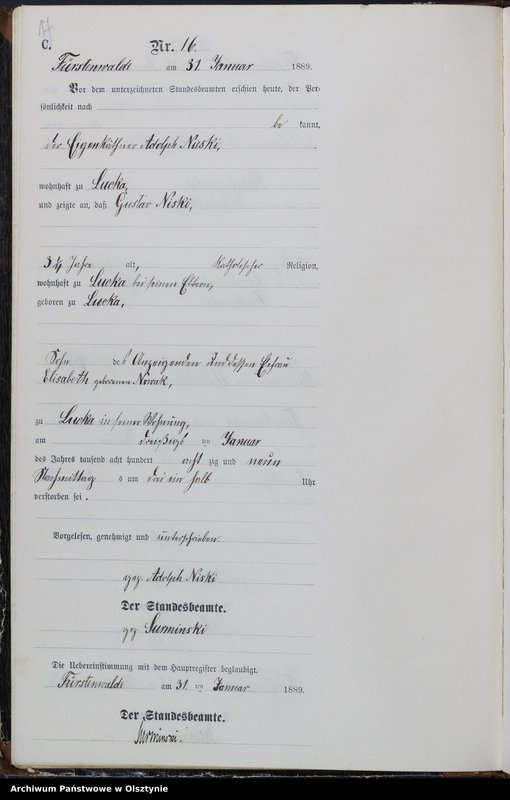 C.
Nr. 16.
Fürstenwalde am 31 Januar 1889.
Vor dem unterzeichneten Standesbeamten erschien heute, der Per-
sönlichkeit nach
be kannt,
der Eigenkäthner Adolph Niski,
wohnhaft zu Lucka,
und zeigte an, daß Gustav Niski,
3¼ Jahre alt, katholischer Religion,
wohnhaft zu Lucka bei seinen Eltern,
geboren zu Lucka,
Sohn des Anzeigenden und dessen Ehefrau
Elisabeth geborenen Nowak,
zu Lucka in seiner Wohnung,
am dreißigs ten Januar
des Jahres tausend acht hundert acht zig und neun
Nachmittag s um drei ein halb Uhr
verstorben sei.
Vorgelesen, genehmigt und unterschrieben.
gez. Adolph Niski
Der Standesbeamte.
gez. Surminski
Die Uebereinstimmung mit dem Hauptregister beglaubigt.
Fürstenwalde am 31 ten Januar 1889.
Der Standesbeamte.
Surminski.
Archiwum Państwowe w Olsztynie